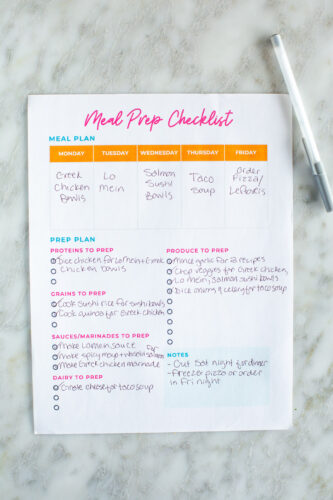 Meal Prep Checklist
MEAL PLAN
MONDAY TUESDAY WEDNESDAY THURSDAY FRIDAY
Greek Chicken Bowls
Lo Mein
Salmon Sushi Bowls
Taco Soup
order Pizza/ Leftovers
PREP PLAN
PROTEINS TO PREP
Dice chicken for Lo Mein + Greek
Chicken Bowls
GRAINS TO PREP
Cook sushi rice for sushi bowls
Cook quinoa for Greek Chicken
SAUCES/MARINADES TO PREP
Make Lo Mein sauce
Make spicy mayo + marinade for salmon
Make Greek chicken marinade
DAIRY TO PREP
Grate cheese for taco soup
PRODUCE TO PREP
Mince garlic for recipes
Chop veggies for Greek chicken,
Lo mein, Salmon sushi bowls
Dice onions + celery for taco soup
NOTES
- Out Sat night for dinner
- Freezer pizza or order
in Fri night